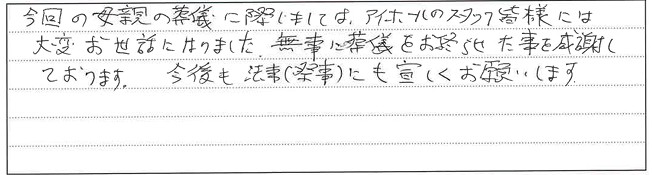 今回の母親の葬儀に際しましては、アイホールのスタッフ皆様には
大変お世話になりました。無事に葬儀をお終らせた事を感謝し
ております。 今後も法事(祭事)にも宜しくお願いします